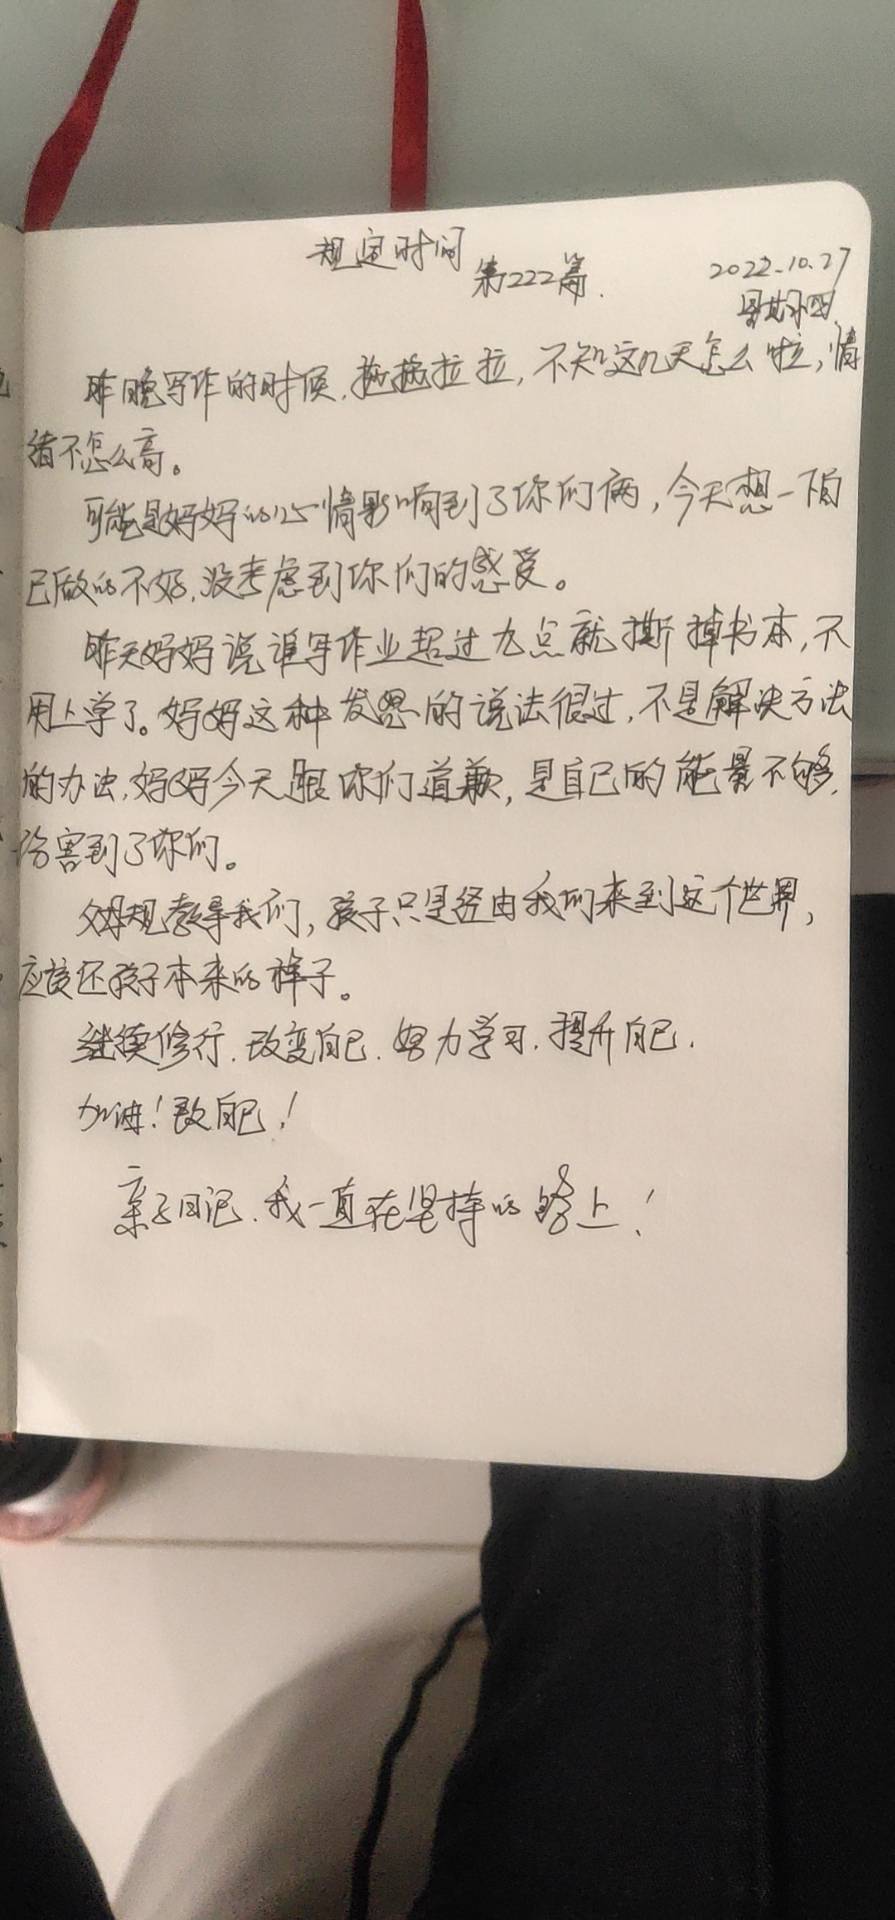 规定时间
第222篇.
2022.10.27
星期四
昨晚写作的时候,拖拖拉拉,不知这几天怎么啦,情
绪不怎么高。
可能是妈妈的心情影响到了你们俩,今天想一下自
己做的不好,没考虑到你们的感受。
昨天妈妈说谁写作业超过九点就撕掉书本,不
用上学了。妈妈这种发怒的说法很过,不是解决方法
的办法,妈妈今天跟你们道歉,是自己的能量不够,
伤害到了你们。
父母规教导我们,孩子只是经由我们来到这个世界,
应该还孩子本来的样子。
继续修行.改变自己.努力学习.提升自己.
加油!致自己!
亲子日记.我一直在坚持的路上!